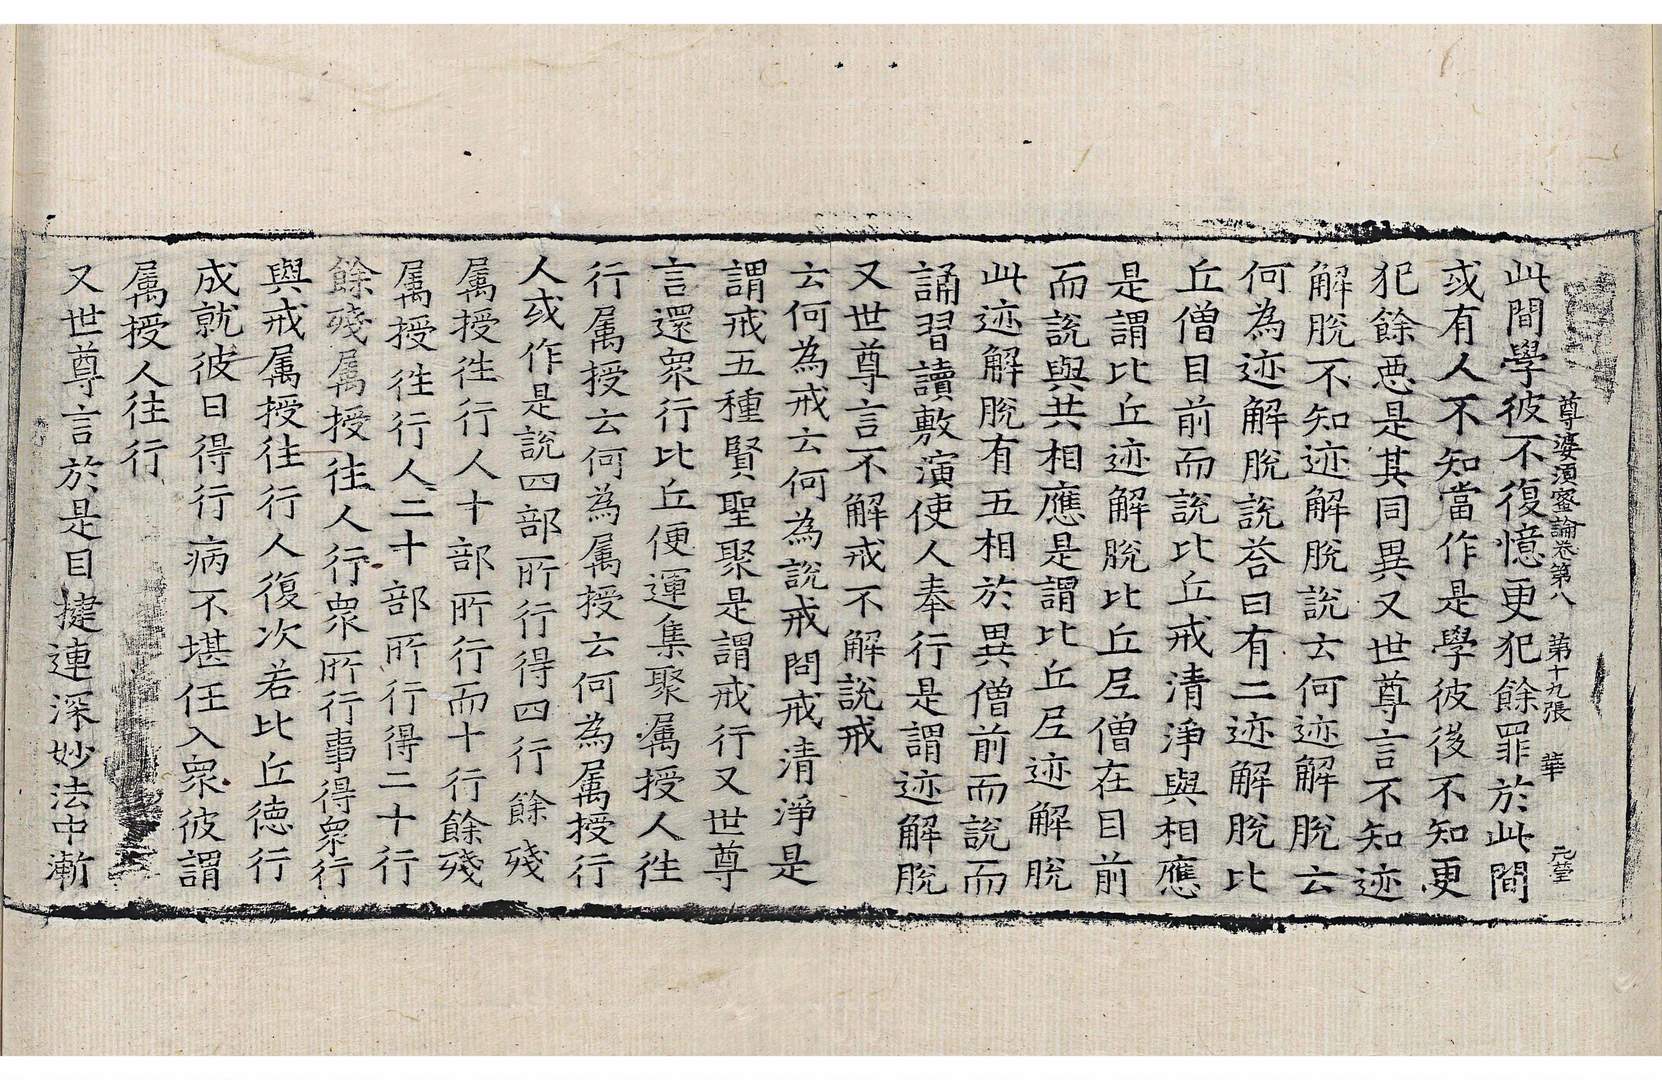 尊婆湏蜜論卷第八 第十九張 華 元瑩
此間學彼不復憶更犯餘罪於此間
或有人不知當作是學彼後不知更
犯餘惡是其同異又世尊言不知迹
解脫不知迹解脫說云何迹解脫云
何為迹解脫說荅曰有二迹解脫比
丘僧目前而說比丘戒清淨與相應
是謂比丘迹解脫比丘尼僧在目前
而說與共相應是謂比丘尼迹解脫
此迹解脫有五相於異僧前而說而
誦習讀敷演使人奉行是謂迹解脫
又世尊言不解戒不解說戒
云何為戒云何為說戒問戒清淨是
謂戒五種賢聖聚是謂戒行又世尊
言還衆行比丘便運集聚属授人往
行属授云何為属授云何為属授行
人或作是說四部所行得四行餘殘
属授往行人十部所行而十行餘殘
属授往行人二十部所行得二十行
餘殘属授往人行衆所行事得衆行
與戒属授往行人復次若比丘德行
成就彼日得行病不堪任入衆彼謂
属授人往行
又世尊言於是目揵連深妙法中漸